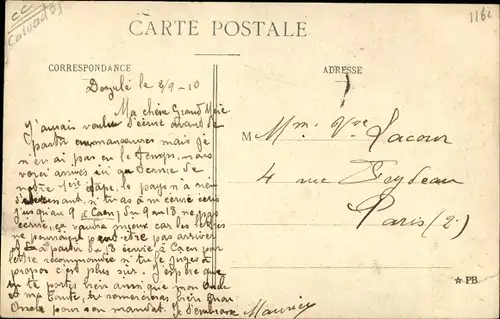 CC
Calvados
1161
CARTE POSTALE
CORRESPONDANCE
ADRESSE
Dozulé le 8/9-10
Ma chère Grand'Mère
J'aurais voulu t'écrire avant de
partir en manœuvres mais je
n'en ai pas eu le temps, nous
voici arrivés ici au terme de
notre 1ère étape, le pays n'a rien
si tu as à m'écrire écris
jusqu'au 9 à Caen, du 9 au 13 ne pas
écrire, ça vaudra mieux car les lettres
ne pourraient peut-être pas arriver
et à partir du 13 écrire à Caen par
lettre recommandée si tu le juges à
propos c'est plus sur. J'espère que
tu te portes bien ainsi que mon Oncle
et ma Tante, tu remercieras bien mon
Oncle pour son mandat. Je t'embrasse Maurice
M Mme Vve Lacour
4 rue Feydeau
Paris (2e)
★ PB.